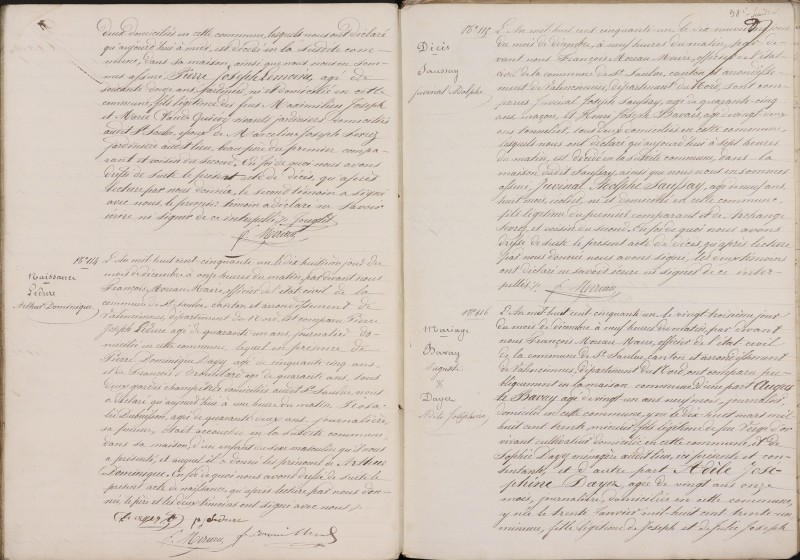 deux domiciliés en cette commune, lesquels nous ont déclaré
qu'aujourd'hui à midi, est décédé en la susdite com-
mune, dans sa maison, ainsi que nous nous en som-
mes assuré, Pierre Joseph Lemoine, âgé de
soixante ans, né et domicilié en cette
commune, fils légitime des feus Maximilien Joseph
et Marie vivants jardiniers domiciliés
audit St. Saulve, époux de Marceline Joseph
jardinière audit lieu, beau père du premier compa-
rant et voisin du second. En foi de quoi nous avons
dressé de suite le présent acte de décès, qu'après
lecture par nous donnée, le second témoin a signé
avec nous, le premier témoin a déclaré ne savoir
écrire ni signer de ce interpellé
N° 114
Naissance
Ledure
Arthur Dominique
L'An mil huit cent cinquante un le dix huitième jour du
mois de décembre à onze heures du matin, pardevant nous
François Moreau Maire, officier de l'état civil de la
commune de St. Saulve, canton et arrondissement de
Valenciennes, département du Nord, est comparu Pierre
Joseph Ledure âgé de quarante un ans, journalier do-
micilié en cette commune, lequel en présence de
Pierre Dominique Dagy âgé de cinquante cinq ans,
et de François âgé de quarante ans, tous
deux gardes champêtres domiciliés audit St. Saulve, nous
a déclaré qu'aujourd'hui à une heure du matin,
Dubuisson, âgée de quarante deux ans, journalière,
sa femme, était accouchée en la susdite commune
dans sa maison, d'un enfant du sexe masculin qu'il nous
a présenté, et auquel il a donné les prénoms de Arthur
Dominique. En foi de quoi nous avons dressé de suite le
présent acte de naissance qu'après lecture par nous don-
née, le père et les deux témoins ont signé avec nous
p. Ledure
N° 115
Décès
Saussay
Juvénal Adolphe
L'An mil huit cent cinquante-un le dix neuvième jour
du mois de décembre, à neuf heures du matin, par de-
vant nous François Moreau Maire, officier de l'état
civil de la commune de St. Saulve, canton et arrondisse-
ment de Valenciennes, département du Nord, sont com-
parus Juvénal Joseph Saussay, âgé de quarante cinq
ans, maçon, et Henri Joseph Bavais, âgé de vingt deux
ans tonnelier, tous deux domiciliés en cette commune
lesquels nous ont déclaré qu'aujourd'hui à sept heures
du matin, est décédé en la susdite commune, dans la
maison dudit Saussay, ainsi que nous nous en sommes
assuré, Juvénal Adolphe Saussay, âgé de neuf ans
huit mois, écolier, né et domicilié en cette commune
fils légitime du premier comparant et de
et voisin du second. En foi de quoi nous avons
dressé de suite le présent acte de décès qu'après lecture
par nous donnée nous avons signé, les deux témoins
ont déclaré ne savoir écrire ni signer de ce inter-
pellés
N° 116
Mariage
Bavay
Auguste
&
Dayez
Adèle Joséphine
L'An mil huit cent cinquante un le vingt troisième jour
du mois de décembre à neuf heures du matin, par devant
nous François Moreau Maire, officier de l'état civil
de la commune de St. Saulve, canton et arrondissement
de Valenciennes, département du Nord, ont comparu pu-
bliquement en la maison commune, d'une part Augus-
te Bavay âgé de vingt un ans neuf mois, journalier
domicilié en cette commune, y né le dix huit mars mil
huit cent trente, mineur, fils légitime de
vivant cultivateur domicilié en cette commune, et de
Sophie Dagy ménagère audit lieu, ici présente et con-
sentante, et d'autre part Adèle José-
phine Dayez âgée de vingt ans onze
mois, journalière, domiciliée en cette commune,
y née le trente Janvier mil huit cent trente-un
mineure, fille légitime de Joseph et de Joseph